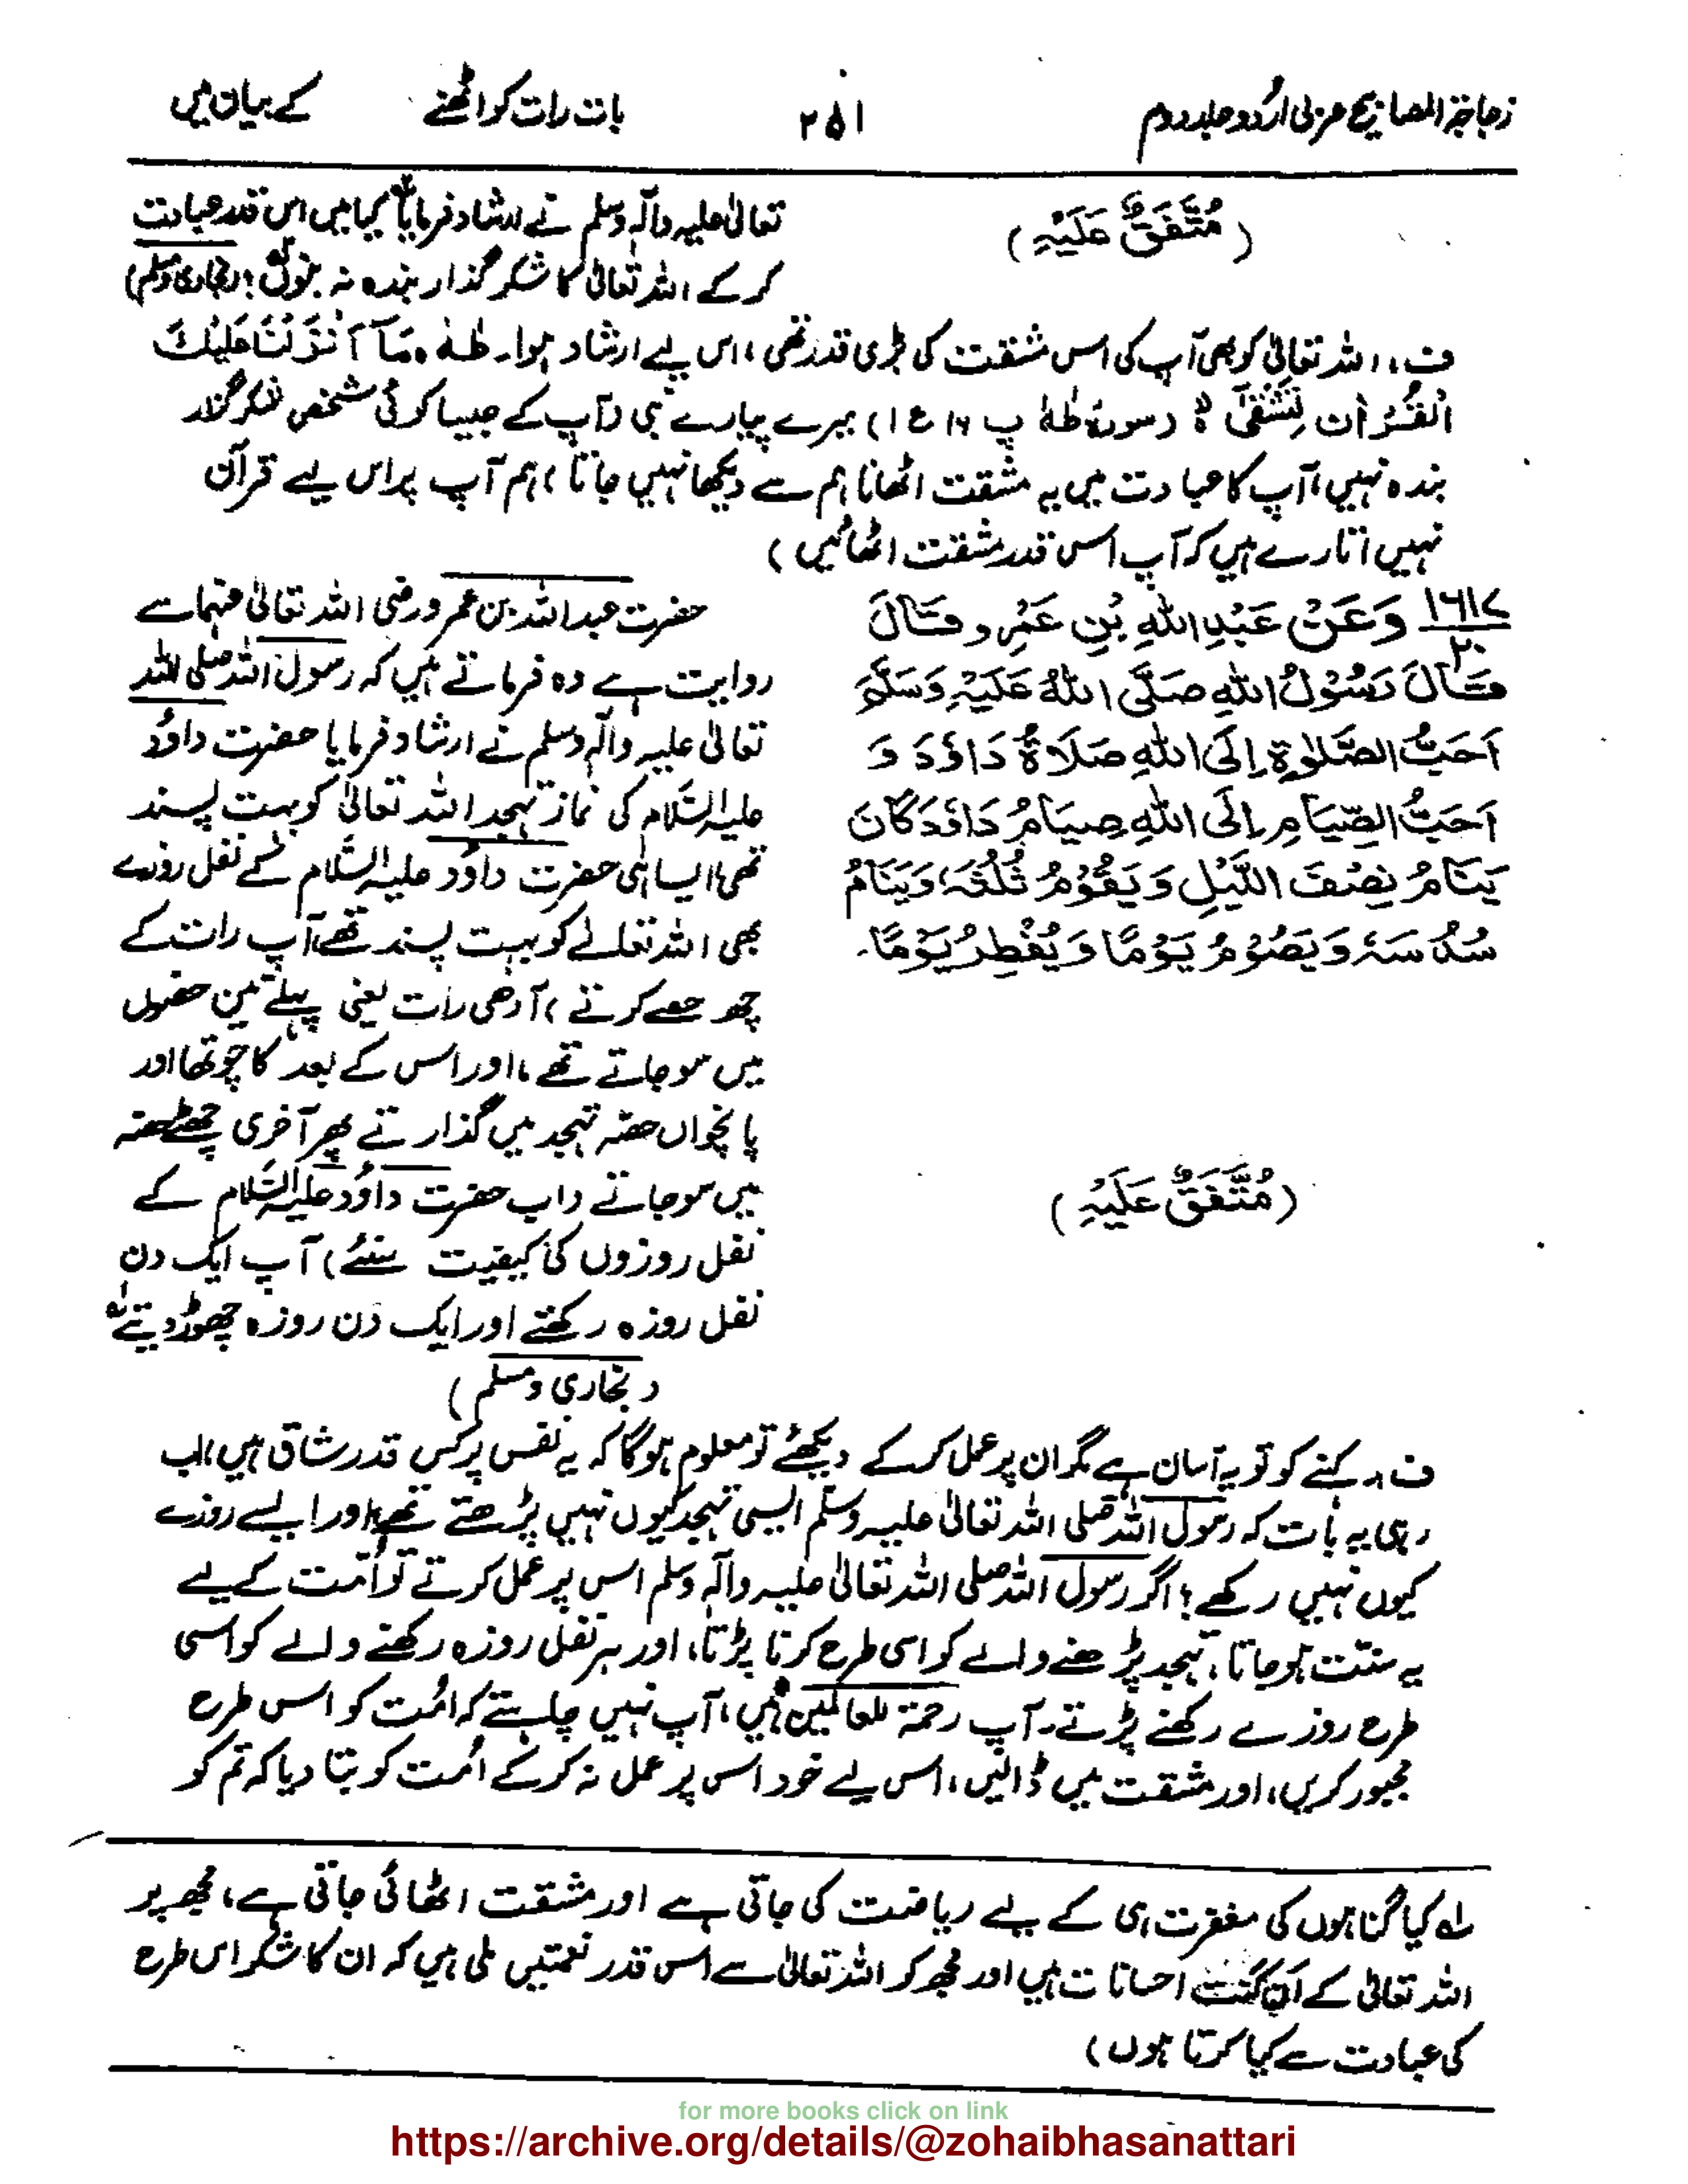 زجاجۃ المصابیح عربی اردو جلد دوم
۲۵۱
باب رات کو اٹھنے کے بیان میں
(مُتَّفَقٌ عَلَيْهِ)
تعالیٰ علیہ وآلہ وسلم نے ارشاد فرمایا کیا میں اس قدر عبادت
کر کے اللہ تعالیٰ کا شکر گذار بندہ نہ بنوں؟ (بخاری ومسلم)
ف:، اللہ تعالیٰ کو بھی آپ کی اس مشقت کی بڑی قدر تھی، اس لیے ارشاد ہوا۔ طٰهٰ ہ مَآ اَنْزَلْنَا عَلَيْكَ
الْقُرْاٰنَ لِتَشْقٰٓى ہ (سورۂ طٰہٰ پ ۱۶ ع ۱) میرے پیارے نبی (آپ کے جیسا کوئی شخص شکر گزار
بندہ نہیں، آپ کا عبادت میں یہ مشقت اٹھانا ہم سے دیکھا نہیں جاتا، ہم آپ پر اس لیے قرآن
نہیں اتارے ہیں کہ آپ اس قدر مشقت اٹھائیں)
۱۶۱۷/۲۰ وَعَنْ عَبْدِ اللهِ بْنِ عَمْرٍو قَالَ
قَالَ رَسُوْلُ اللهِ صَلَّى اللهُ عَلَيْهِ وَسَلَّمَ
اَحَبُّ الصَّلٰوةِ اِلَى اللهِ صَلَاةُ دَاوٗدَ وَ
اَحَبُّ الصِّيَامِ اِلَى اللهِ صِيَامُ دَاوٗدَ كَانَ
يَنَامُ نِصْفَ اللَّيْلِ وَيَقُوْمُ ثُلُثَهٗ وَيَنَامُ
سُدُسَهٗ وَيَصُوْمُ يَوْمًا وَيُفْطِرُ يَوْمًا۔
(مُتَّفَقٌ عَلَيْهِ)
حضرت عبداللہ بن عمرو رضی اللہ تعالیٰ عنہما سے
روایت ہے وہ فرماتے ہیں کہ رسول اللہ صلی اللہ
تعالیٰ علیہ وآلہ وسلم نے ارشاد فرمایا حضرت داؤد
علیہ السّلام کی نماز تہجد اللہ تعالیٰ کو بہت پسند
تھی، ایسا ہی حضرت داؤد علیہ السّلام کے نفل روزے
بھی اللہ تعالے کو بہت پسند تھے، آپ رات کے
چھ حصے کرتے، آدھی رات یعنی پہلے تین حصوں
میں سو جاتے تھے، اور اس کے بعد کا چوتھا اور
پانچواں حصّہ تہجد میں گذارتے پھر آخری چھٹے حصّہ
میں سو جاتے (اب حضرت داؤد علیہ السّلام کے
نفل روزوں کی کیفیت سنئے) آپ ایک دن
نفل روزہ رکھتے اور ایک دن روزہ چھوڑ دیتے
(بخاری ومسلم)
ف:۔ کہنے کو تو یہ آسان ہے مگر ان پر عمل کر کے دیکھئے تو معلوم ہوگا کہ یہ نفس پر کس قدر شاق ہیں، اب
رہی یہ بات کہ رسول اللہ صلی اللہ تعالیٰ علیہ وسلم ایسی تہجد کیوں نہیں پڑھتے تھے، اور ایسے روزے
کیوں نہیں رکھے؟ اگر رسول اللہ صلی اللہ تعالیٰ علیہ وآلہ وسلم اس پر عمل کرتے تو اُمّت کے لیے
یہ سنّت ہو جاتا، تہجد پڑھنے والے کو اسی طرح کرنا پڑتا، اور ہر نفل روزہ رکھنے والے کو اسی
طرح روزے رکھنے پڑتے۔ آپ رحمۃ للعالمین ہیں، آپ نہیں چاہتے کہ اُمّت کو اس طرح
مجبور کریں، اور مشقت میں ڈالیں، اس لیے خود اس پر عمل نہ کر کے اُمت کو بتا دیا کہ تم کو
لے کیا گناہوں کی مغفرت ہی کے لیے ریاضت کی جاتی ہے اور مشقت اٹھائی جاتی ہے، مجھ پر
اللہ تعالیٰ کے اَن گنت احسانات ہیں اور مجھ کو اللہ تعالیٰ سے اس قدر نعمتیں ملی ہیں کہ ان کا شکر اس طرح
کی عبادت سے کیا کرتا ہوں)
for more books click on link
https://archive.org/details/@zohaibhasanattari